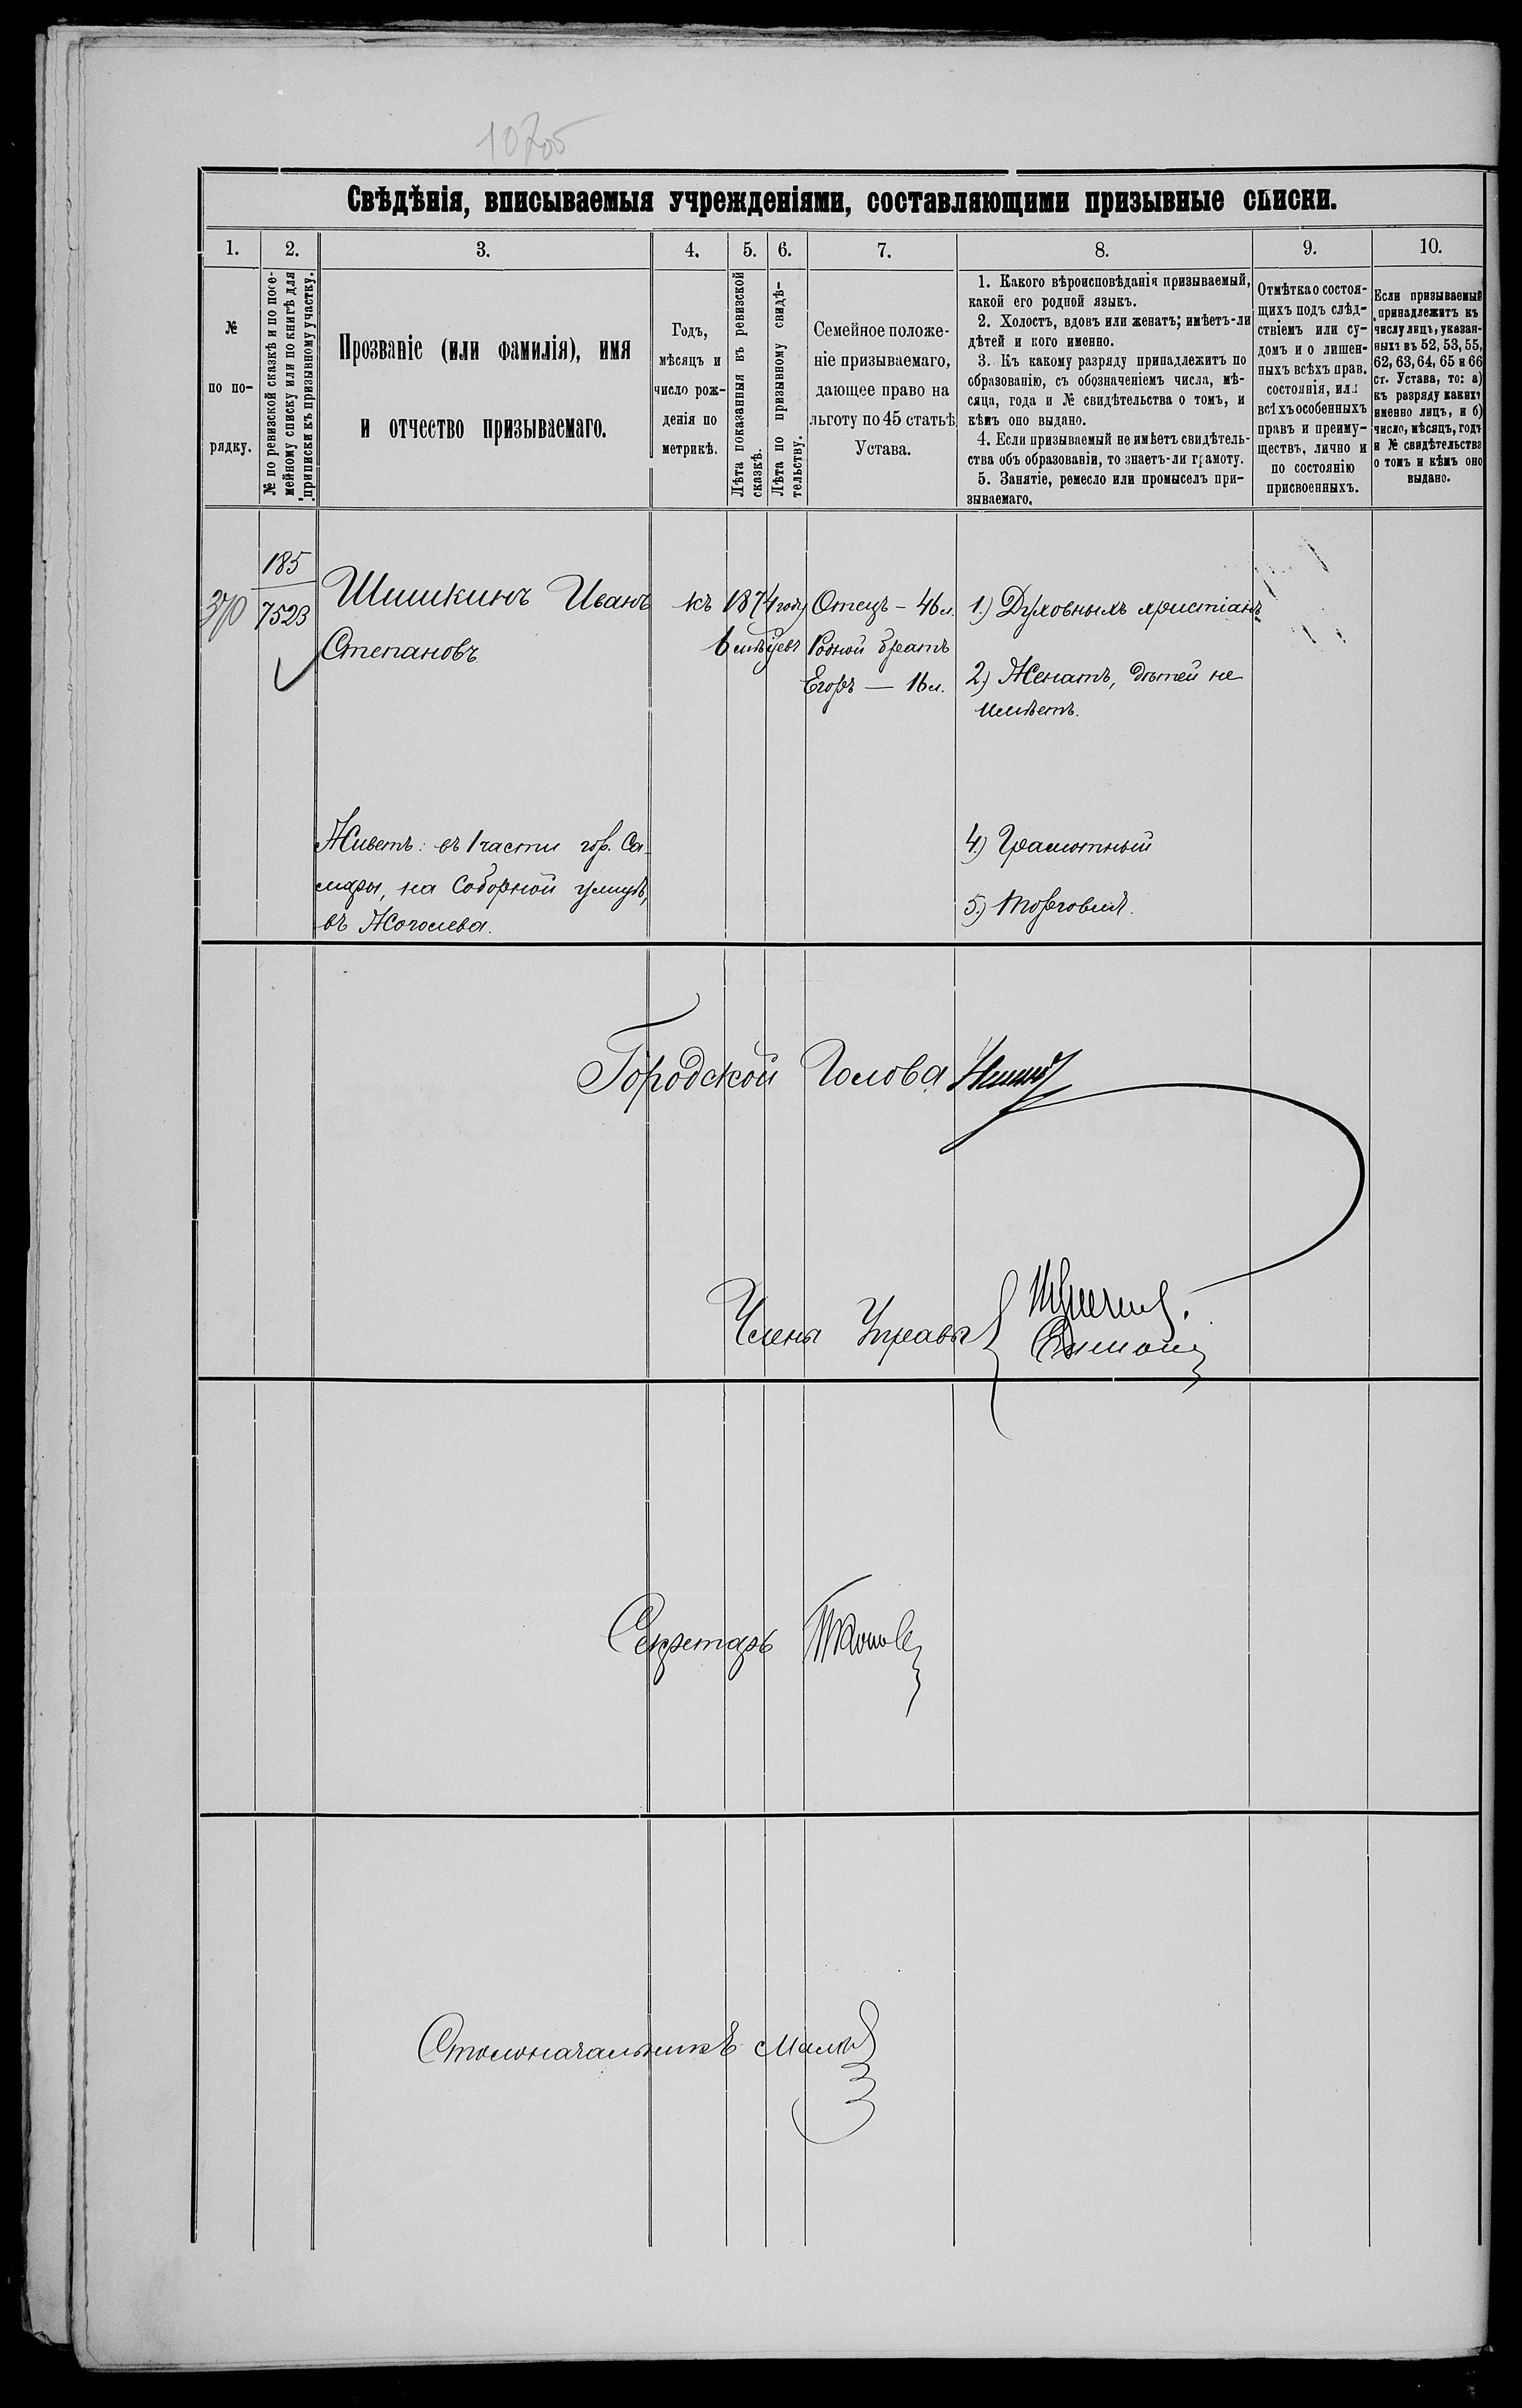 10705
Свѣдѣнія, вписываемыя учрежденіями, составляющими призывные списки.
1. 2. 3. 4. 5. 6. 7. 8. 9. 10.
№
по по-
рядку.
№ по ревизской сказкѣ и по посе-
мейному списку или по книгѣ для
приписки къ призывному участку.
Прозваніе (или фамилія), имя
и отчество призываемаго.
Годъ,
мѣсяцъ и
число рож-
денія по
метрикѣ.
Лѣта показанныя въ ревизской
сказкѣ.
Лѣта по призывному свидѣ-
тельству.
Семейное положе-
ніе призываемаго,
дающее право на
льготу по 45 статьѣ
Устава.
1. Какого вѣроисповѣданія призываемый,
какой его родной языкъ.
2. Холостъ, вдовъ или женатъ; имѣетъ-ли
дѣтей и кого именно.
3. Къ какому разряду принадлежитъ по
образованію, съ обозначеніемъ числа, мѣ-
сяца, года и № свидѣтельства о томъ, и
кѣмъ оно выдано.
4. Если призываемый не имѣетъ свидѣтель-
ства объ образованіи, то знаетъ-ли грамоту.
5. Занятіе, ремесло или промыселъ при-
зываемаго.
Отмѣтка о состоя-
щихъ подъ слѣд-
ствіемъ или су-
домъ и о лишен-
ныхъ всѣхъ прав.
состоянія, или
всѣхъ особенныхъ
правъ и преиму-
ществъ, лично и
по состоянію
присвоенныхъ.
Если призываемый
принадлежитъ къ
числу лицъ, указан-
ныхъ въ 52, 53, 55,
62, 63, 64, 65 и 66
ст. Устава, то: а)
къ разряду какихъ
именно лицъ, и б)
число, мѣсяцъ, годъ
и № свидѣтельства
о томъ и кѣмъ оно
выдано.
370
185
7523
Шишкинъ Иванъ
Степановъ
къ 1874 году
6 мѣсяцевъ
Отецъ – 46 л.
Родной братъ
Егоръ — 16 л.
1.) Духовныхъ христіанъ
2.) Женатъ, дѣтей не
имѣетъ.
Живетъ: въ 1 части гор. Са-
мары, на Соборной улицѣ,
4.) Грамотный
5.) Торговля.
Городской Голова
Члены Управы
Секретарь
Столоначальникъ